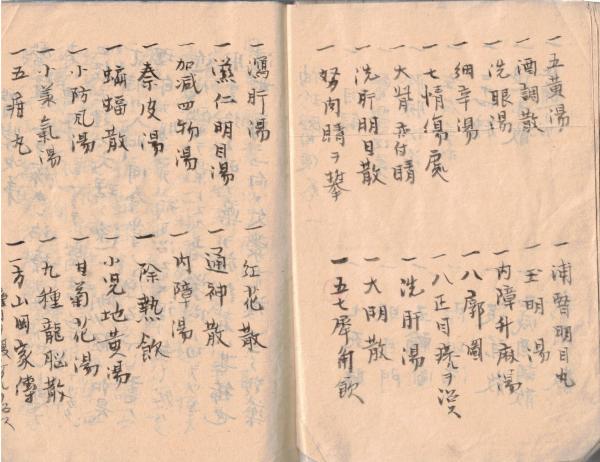 一五黄湯
一酒調散
一洗眼湯
一細辛湯
一七情傷處
一大眥赤付睛
一洗肝明目散
一努肉睛ヲ攀
一蒲䀋明目丸
一玉明湯
一内障升麻湯
一八廓圖
一八正目疣ヲ治ス
一洗肝湯
一大明散
一五七犀角飲
一瀉肝湯
一蕤仁明目湯
一加減四物湯
一秦皮湯
一蝙蝠散
一小防風湯
一小羡氣湯
一五疳丸
一紅花散
一通神散
一内障湯
一除熱飲
一小児地黄湯
一甘菊花湯
一九種龍脳散
一一方山岡家傳